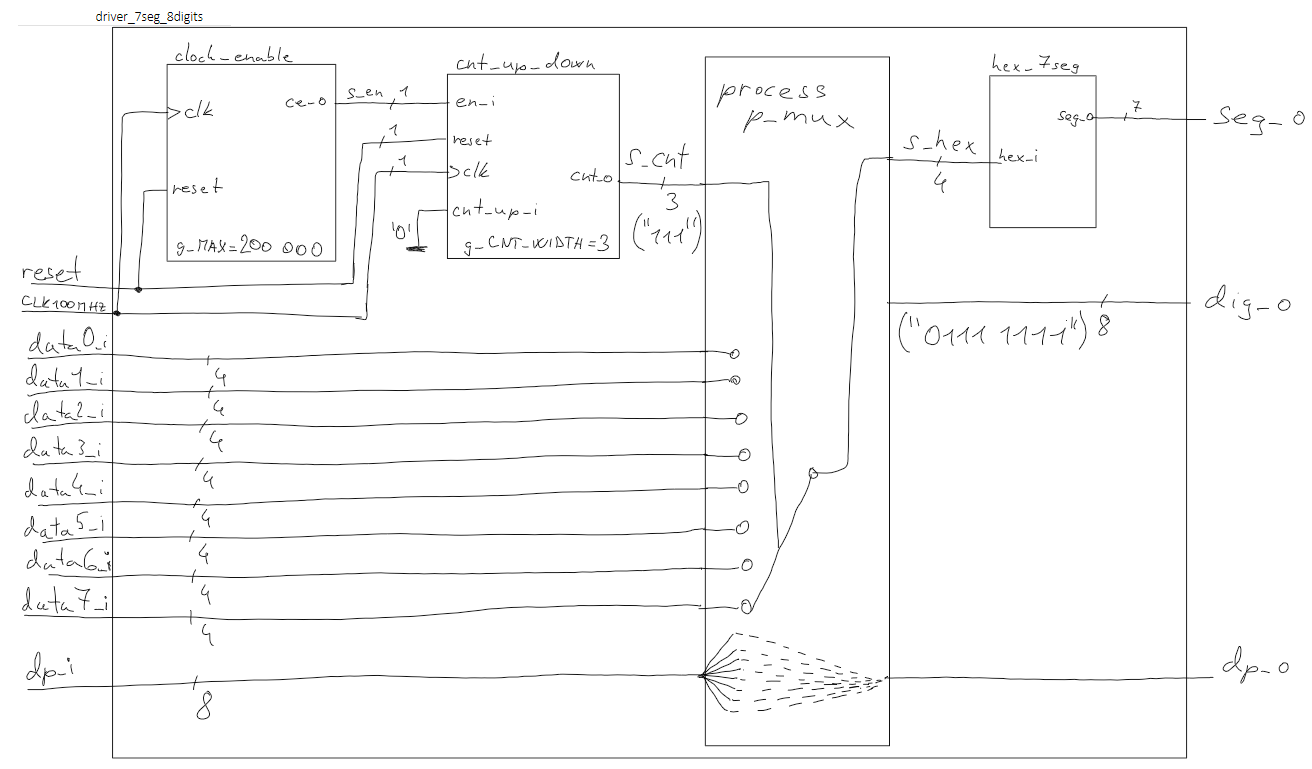 driver_7seg_8digits
clock_enable
clk
ce_o
reset
g_MAX=200 000
s_en
1
cnt_up_down
en_i
1
reset
1
clk
cnt_o
cnt_up_i
'0'
g_CNT_WIDTH=3
s_cnt
3
("111")
process
p_mux
s_hex
4
hex_7seg
seg_o
hex_i
7
seg_o
reset
CLK100MHZ
dig_o
("0111 1111")
8
data0_i
4
data1_i
4
data2_i
4
data3_i
4
data4_i
4
data5_i
4
data6_i
4
data7_i
4
dp_i
8
dp_o